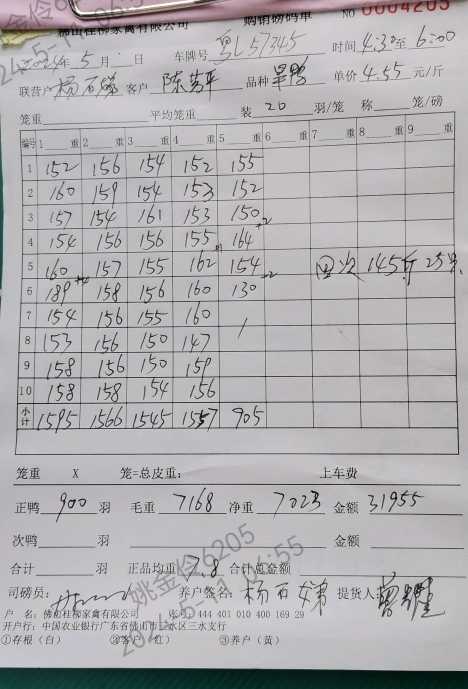 佛山桂柳家禽有限公司 购销磅码单 NO 0004205
2024年5月 日 车牌号 粤L57345 时间 4:30至6:00
联营户 杨石娣 客户 陈芳平 品种 旱鸭 单价 4.55 元/斤
笼重: 平均笼重: 装 20 羽/笼 称 笼/磅
编号 1 重 2 重 3 重 4 重 5 重 6 重 7 重 8 重 9 重
1 152 156 154 152 155
2 160 159 154 153 152
3 157 154 161 153 150
4 154 156 156 155 164
5 160 157 155 162 154 145斤 25只
6 189 158 156 160 130
7 154 156 155 160
8 153 156 150 147
9 158 156 150 159
10 158 158 154 156
小计 1595 1566 1545 1557 905
笼重 X 笼=总皮重: 上车费
正鸭 900 羽 毛重 7168 净重 7023 金额 31955
次鸭 羽 金额
合计 羽 正品均重 7.8 合计总金额
司磅员: 养户签名: 杨石娣 提货人:
户 名: 佛山桂柳家禽有限公司 账号: 444 401 010 400 169 29
开户行: 中国农业银行广东省佛山市三水区三水支行
①存根(白) ②客户(红) ③养户(黄)
姚金伶6205